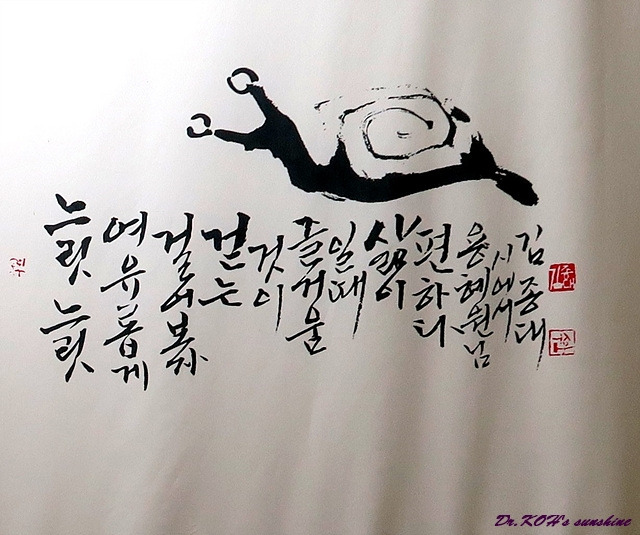 느릿 느릿
여유롭게
걸어보자
걷는
것이
즐거울
일때
삶이
편하다
용혜원님
시에서
김종대
Dr.KOH's sunshine